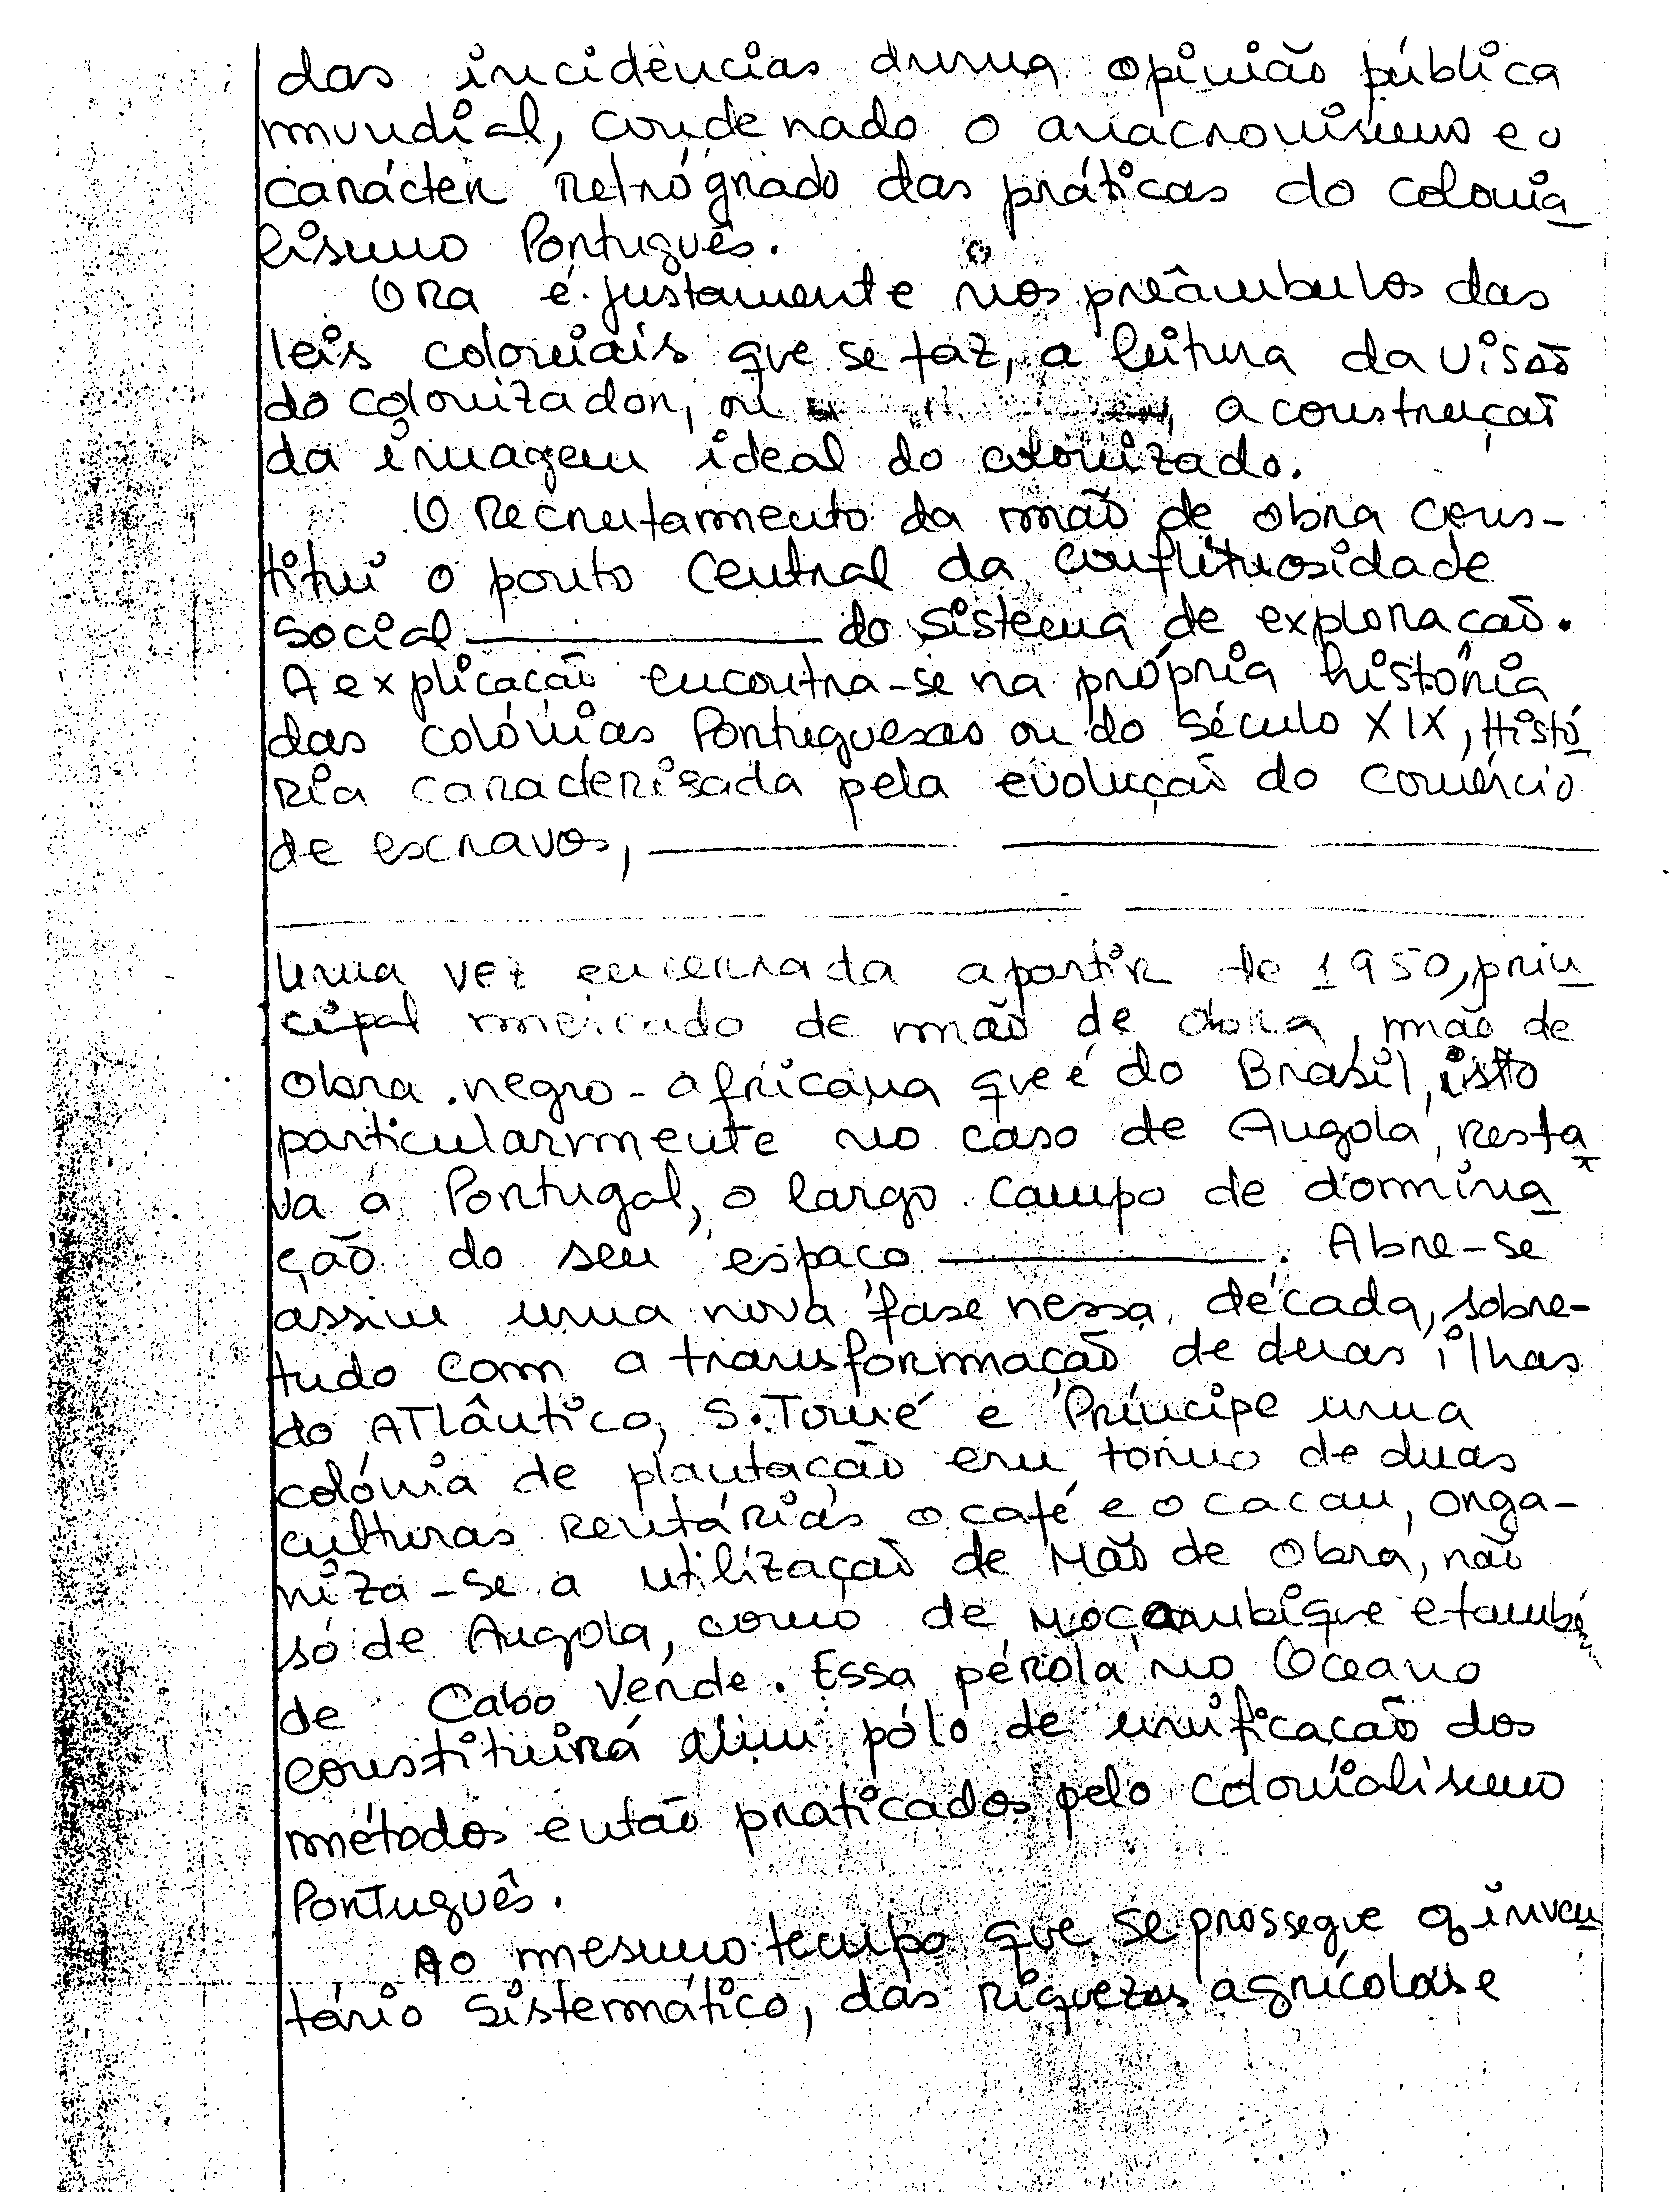 das incidências duma opinião pública
mundial, condenado o anacronismo e o
carácter retrógrado das práticas do colonia
lismo Português.
Ora é justamente nos preâmbulos das
leis coloniais que se faz, a leitura da visão
do colonizador, ou a construção
da imagem ideal do colonizado.
O Recrutamento da mão de obra cons-
titui o ponto central da conflituosidade
social ______ do sistema de exploração.
A explicação encontra-se na própria história
das colónias Portuguesas ou do século XIX, Histó
ria caracterisada pela evolução do comércio
de escravos, ______ ______ ______
______ ______ ______
uma vez encerrada apartir de 1950, prin
cipal mercado de mão de obra, mão de
obra negro-africana que é do Brasil, isto
particularmente no caso de Angola, resta
va a Portugal, o largo campo de domina
ção do seu espaço ______. Abre-se
assim uma nova fase nessa década, sobre-
tudo com a transformação de duas ilhas
do ATlântico, S. Tomé e Príncipe uma
colónia de plantação em torno de duas
culturas rentárias o café e o cacau, orga-
niza-se a utilização de Mão de Obra, não
só de Angola, como de Moçambique e també
de Cabo Verde. Essa pérola no Oceano
constituirá um pólo de unificação dos
métodos então praticados pelo colonialismo
Português.
Ao mesmo tempo que se prossegue o inven
tário sistemático, das riquezas agrícolas e